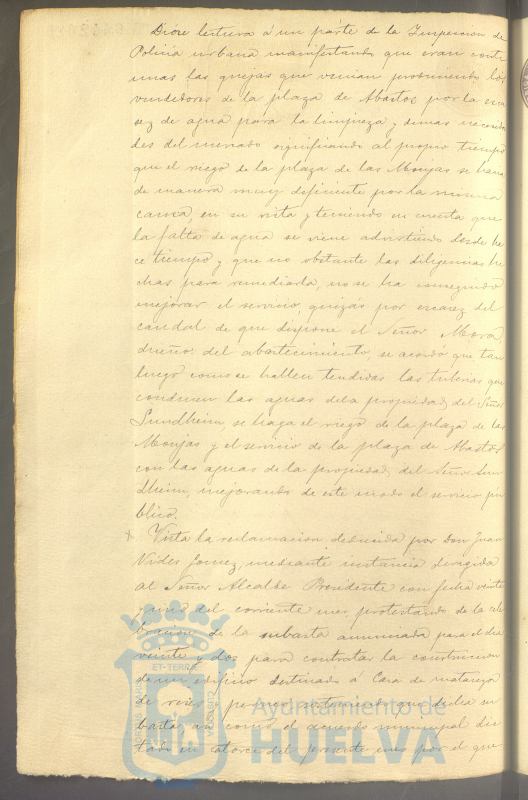 Dióse lectura á un parte de la Inspeccion de
Policia urbana manifestando que eran conti
nuas las quejas que venian produciendo los
vendedores de la plaza de Abastos por la esca
sez de agua para la limpieza y demas necesida
des del mercado significando al propio tiempo
que el riego de la plaza de las Monjas se hacia
de manera muy deficiente por la misma
causa, en su vista y teniendo en cuenta que
la falta de agua se viene advirtiendo desde ha
ce tiempo y que no obstante las diligencias he
chas para remediarla, no se ha conseguido
mejorar el servicio, quizás por escasez del
caudal de que dispone el Señor Mora,
dueño del abastecimiento, se acordó que tan
luego como se hallen tendidas las tuberias que
conducen las aguas de la propiedad del Señor
Sundheim, se haga el riego de la plaza de las
Monjas y el servicio de la plaza de Abastos
con las aguas de la propiedad del Señor Sun
dheim, mejorando de este modo el servicio pú
blico.
Vista la reclamacion deducida por Don Juan
Vides Gomez, mediante instancia dirigida
al Señor Alcalde Presidente con fecha veinte
y uno del corriente mes, protestando de la cele
bracion de la subasta anunciada para el dia
veinte y dos para contratar la construccion
de un edificio destinado á Casa de matanza
de reses, por que dicha su
basta, así como el acuerdo municipal dic
tado en catorce del presente mes por el que
ET-TERRA
Ayuntamiento de
HUELVA